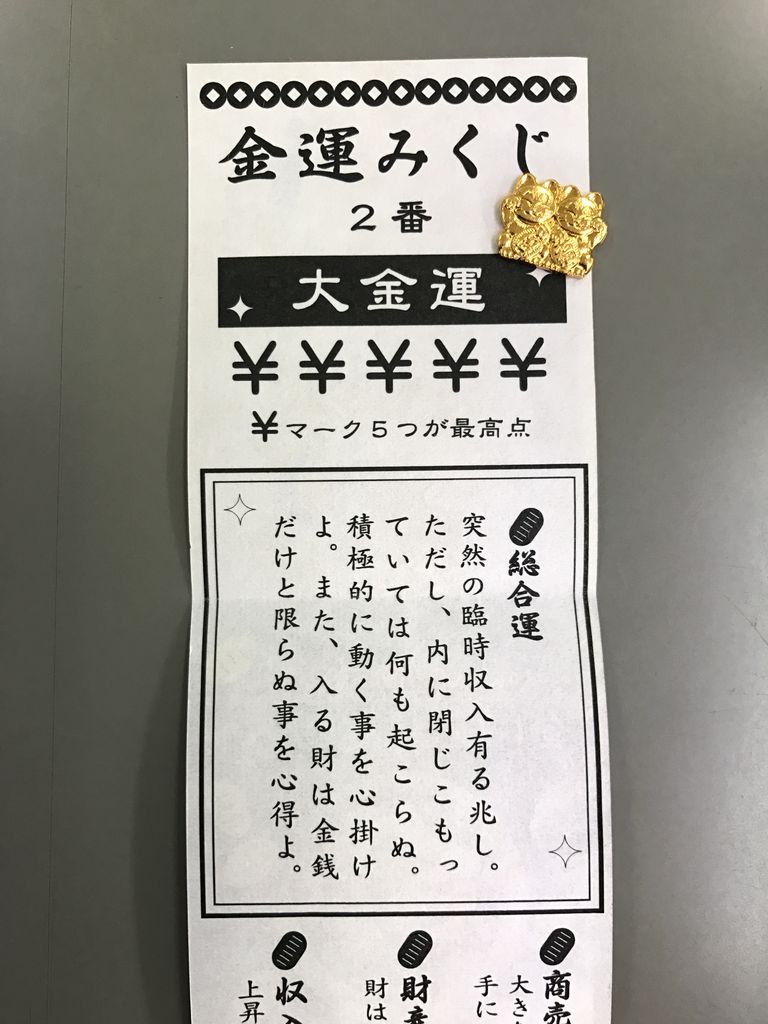 金運みくじ
２番
大金運
¥¥¥¥¥
¥マーク５つが最高点
総合運
突然の臨時収入有る兆し。
ただし、内に閉じこもっ
ていては何も起こらぬ。
積極的に動く事を心掛け
よ。また、入る財は金銭
だけと限らぬ事を心得よ。
商売
大き
手に
財産
財は
収入
上昇